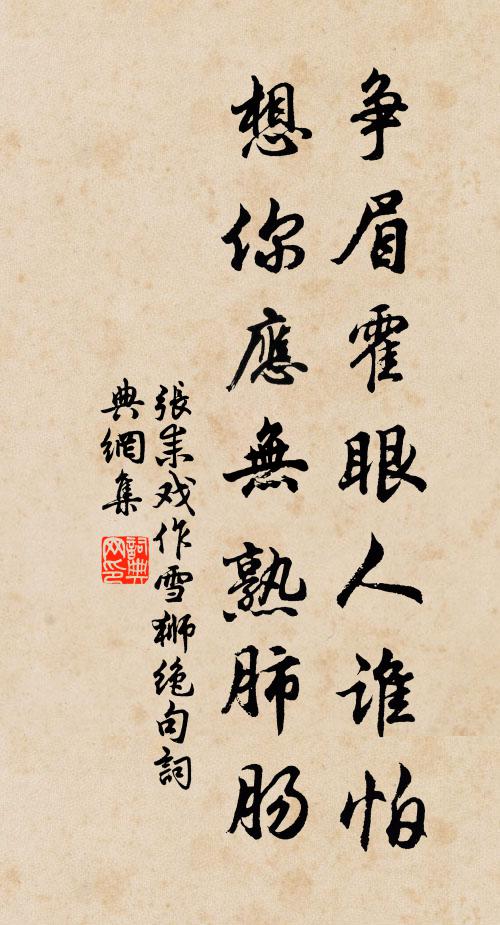 争眉霍眼人谁怕
想你應無熟肺肠
張耒戏作雪獅绝句詞
典網集
詞典網印